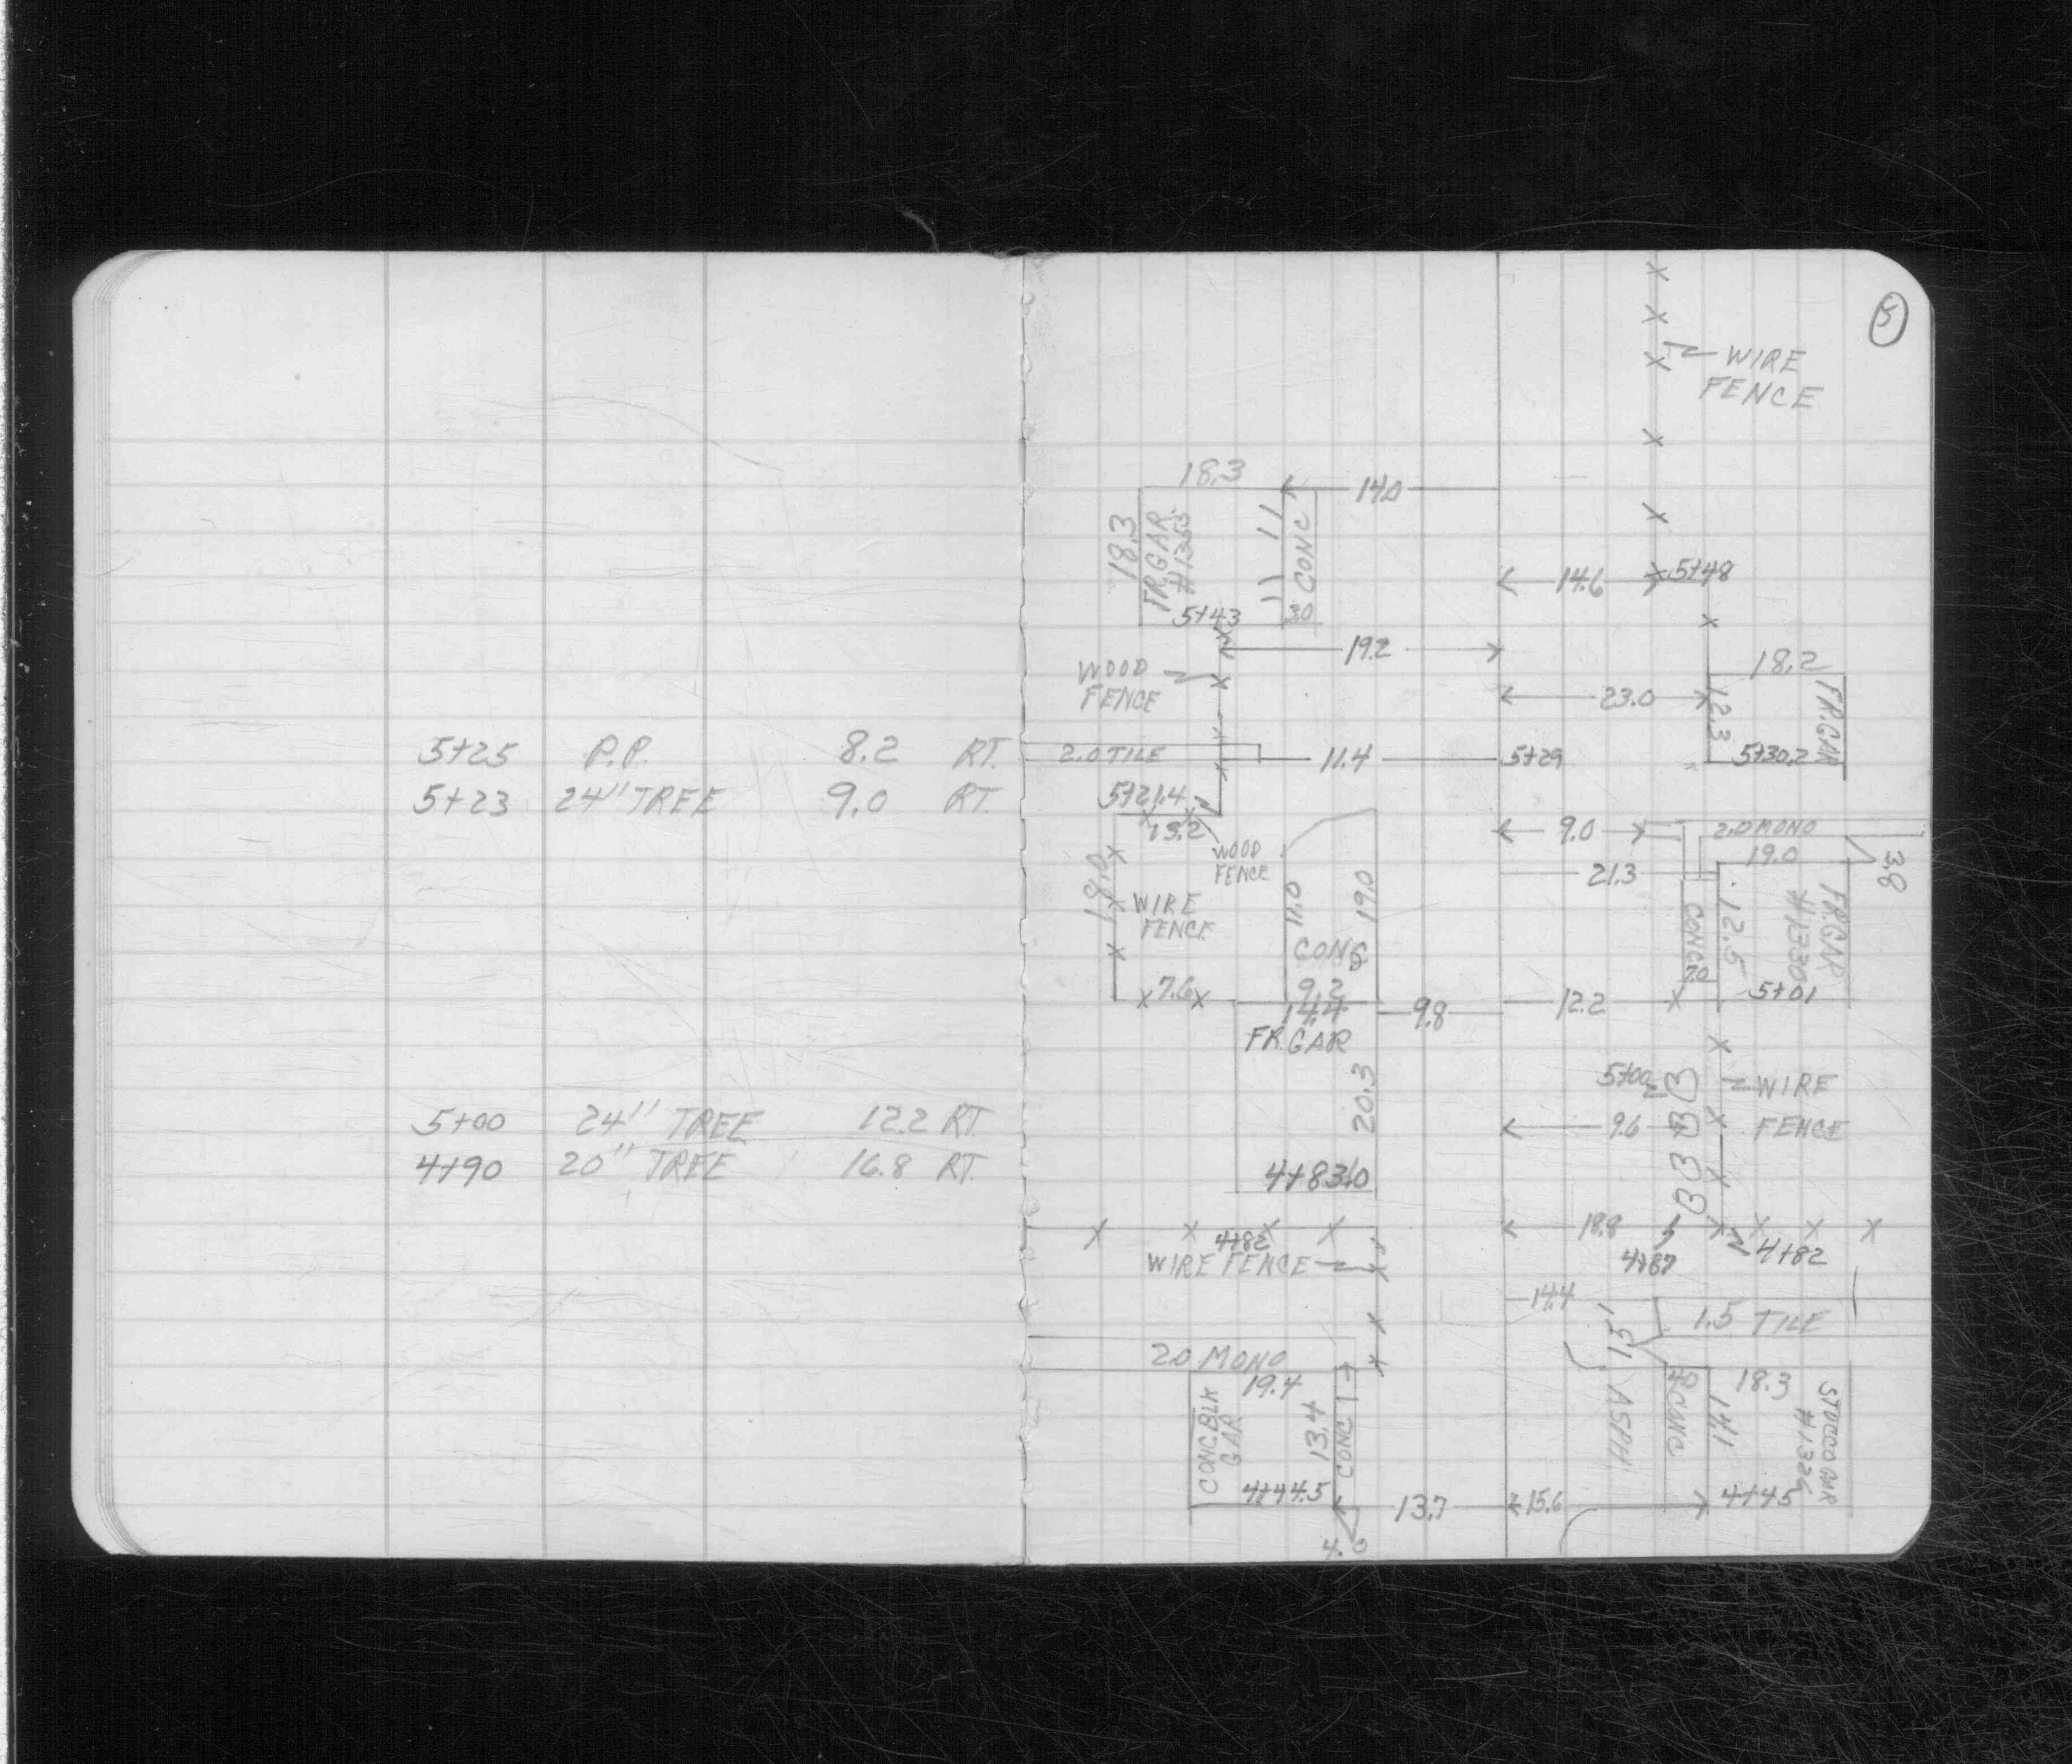 5+25 P.P. 8.2 RT.
5+23 24" TREE 9.0 RT.
5+00 24" TREE 12.2 RT
4+90 20" TREE 16.8 RT.
5
WIRE
FENCE
18.3
14.0
18.3
FR.GAR.
#1353
CONC
5+43
30
14.6
5+48
19.2
WOOD
FENCE
18.2
23.0
12.3
FR.GAR
5+30.2
2.0 TILE
11.4
5+29
5+21.4
13.2
WOOD
FENCE
9.0
2.0 MONO
19.0
3.8
21.3
18.0
WIRE
FENCE
11.0
19.0
CONC
9.2
7.6
14.4
FR.GAR
9.8
12.2
CONC
7.0
12.5
FR.GAR
#1330
5+01
20.3
5+00
WIRE
FENCE
9.6
4+83.0
4+82
WIRE FENCE
18.8
4+87
4+82
14.4
1.5 TILE
1.5
2.0 MONO
19.4
CONC.BLK
GAR
13.4
CONC
4+44.5
13.7
4.0
15.6
ASPH
40
CONC
18.3
14.1
STUCCO GAR
#1326
4+45